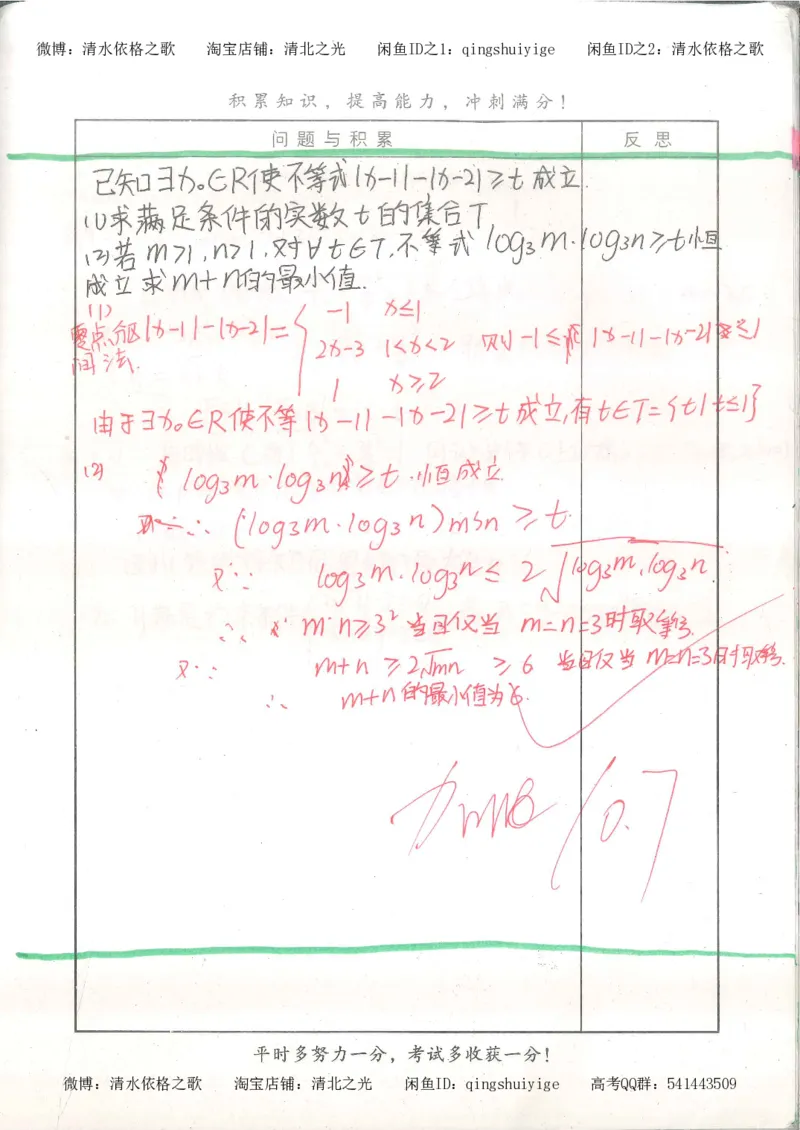 微博：清水依格之歌 淘宝店铺：清北之光 闲鱼ID之1：qingshuiyige 闲鱼ID之2：清水依格之歌
积累知识，提高能力，冲刺满分！
问题与积累 反思
已知∃x₀∈R使不等式|x-1|-|x-2|≥t成立.
(1)求满足条件的实数t的集合T
(2)若m>1,n>1,对∀t∈T,不等式log₃m·log₃n≥t恒
成立求m+n的最小值.
(1)
零点分区间法. |x-1|-|x-2|={ -1 x≤1
2x-3 1<x<2 则-1≤|x-1|-|x-2|≤1
1 x≥2
由于∃x₀∈R使不等|x-1|-|x-2|≥t成立,有t∈T={t|t≤1}
(2) log₃m·log₃n≥t·恒成立
∴ (log₃m·log₃n)min≥t
又∵ log₃m·log₃n≤2√log₃m·log₃n
∴ m·n≥3² 当且仅当m=n=3时取等.
又∵ m+n≥2√mn ≥6 当且仅当m=n=3时取等.
∴ m+n的最小值为6.
10.7
平时多努力一分，考试多收获一分！
微博：清水依格之歌 淘宝店铺：清北之光 闲鱼ID：qingshuiyige 高考QQ群：541443509